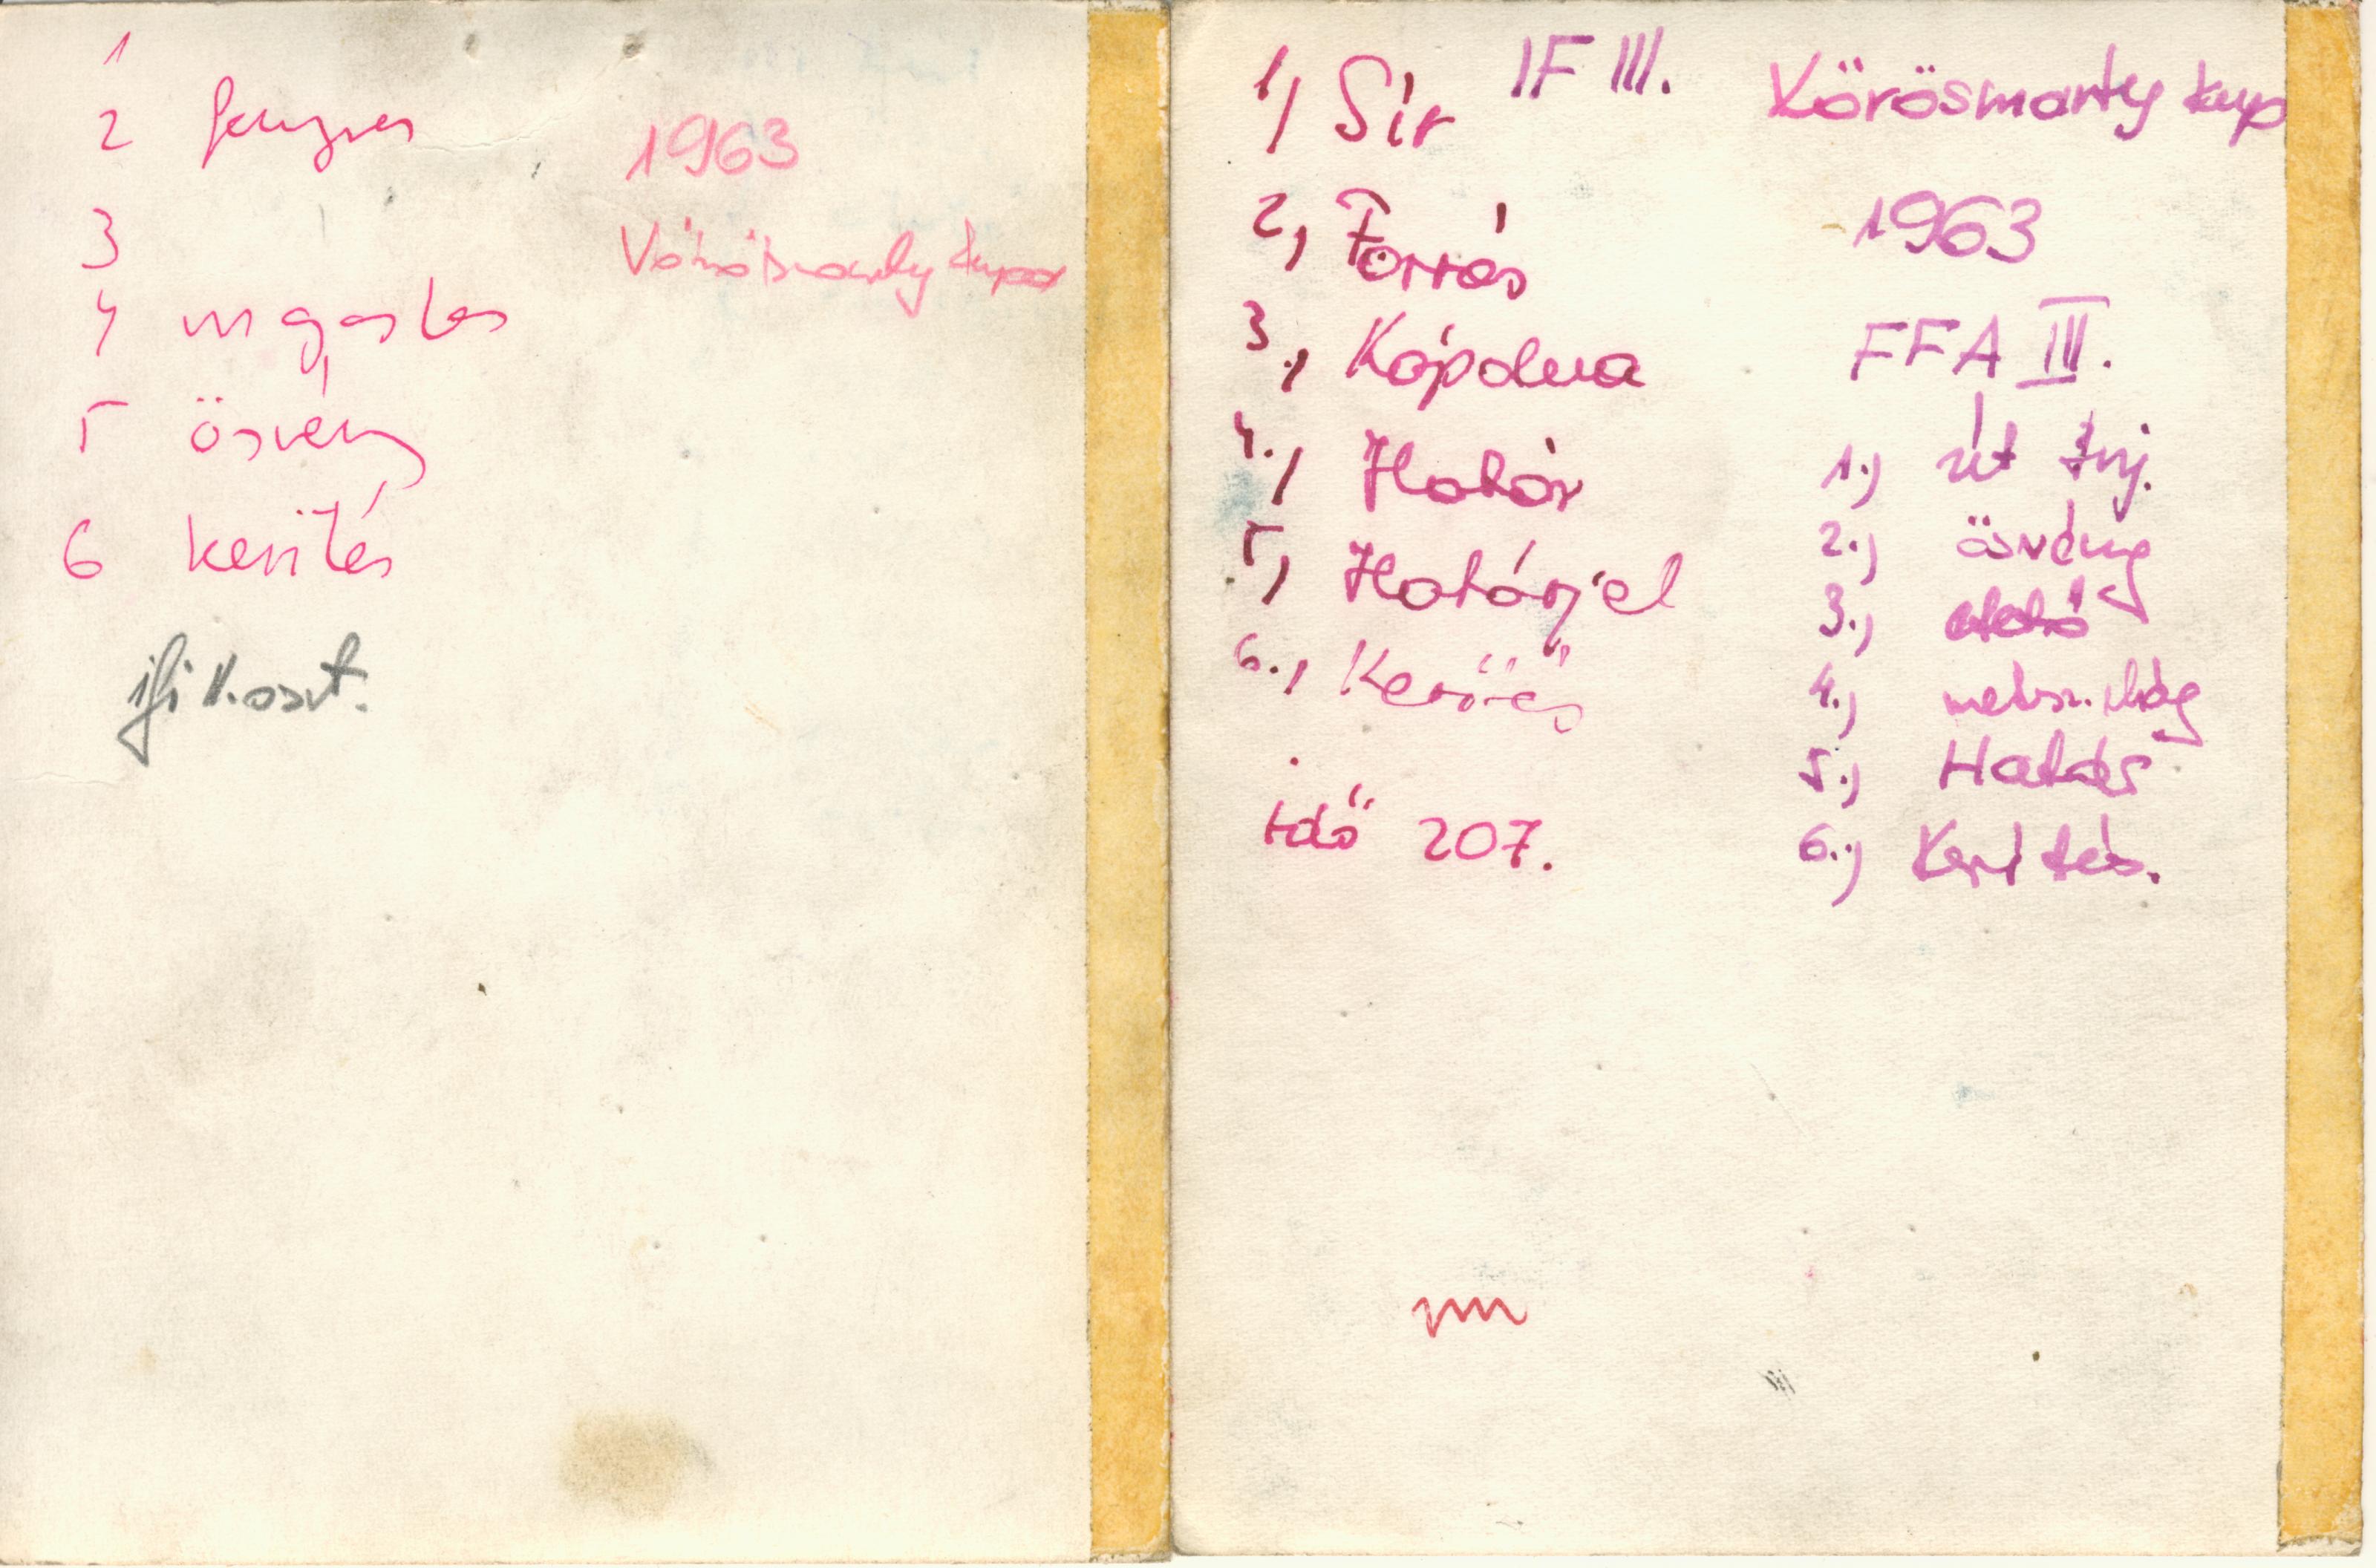 1
2 fenyves
3
4 magasles
5 ösvény
6 kerités
ifi II. oszt.
1963
Vörösmarty kupa
1, Sír
IF III.
2, Forrás
3., Kápolna
4., Határ
5, Határjel
6.,
idő 207.
Vörösmarty kup
1963
FFA III.
1.) út
2.) ösvény
3.) etető
4.)
5.) Határ
6.) Kerités.